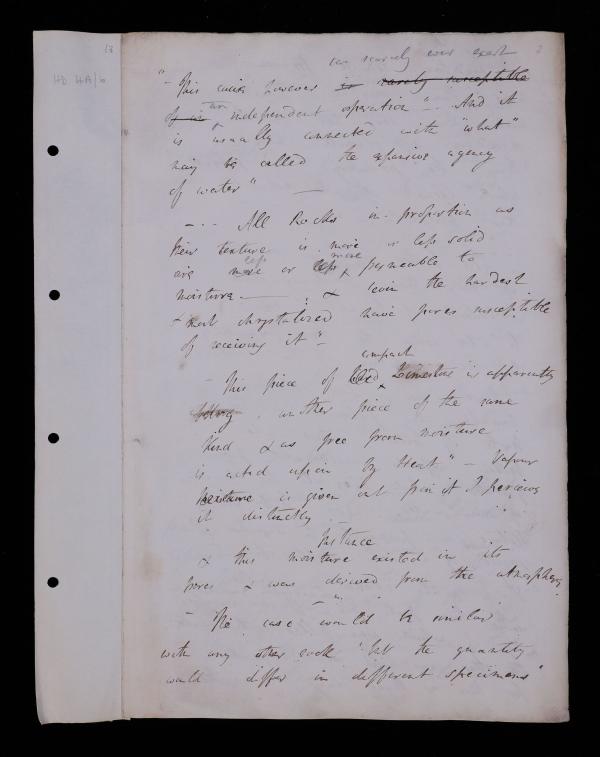 13
2
HD 4A/6
can rarely ever exert
"- This cause however is rarely susceptible
of an independent operation" -. And it
is usually connected with "what"
may be called the expansive agency
of water" —
- - - All Rocks in proportion as
their texture is more or less solid
less more
are more or less permeable to
moisture — ; & even the hardest
& most chrystalized have pores susceptible
of receiving it" -
compact
- This piece of Limestone is apparently
another piece of the same
Kind & as free from moisture
is acted upon by Heat" - Vapour
is given out from it I perceive
it distinctly -
Instance
& this moisture existed in its
pores & was derived from the atmosphere
- The case would be similar
with any other rock but the quantity
would differ in different specimens"